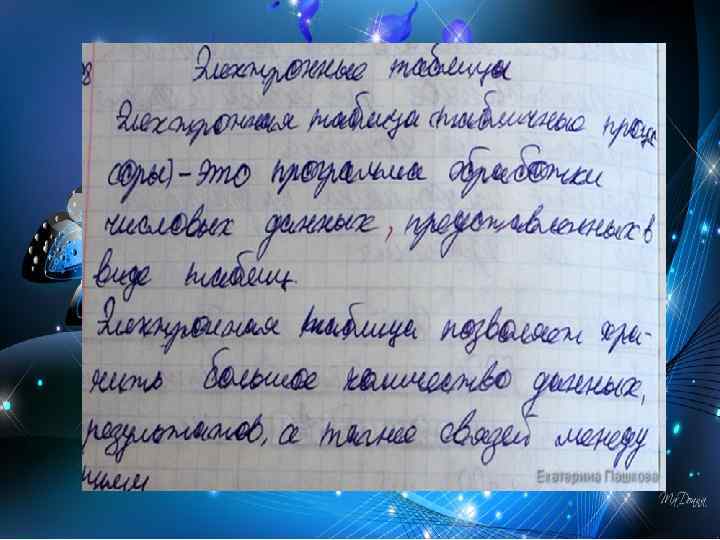 Электронные таблицы
Электронная таблица (табличные проце
соры) – это программа обработки
числовых данных, представленных в
виде таблиц.
Электронная таблица позволяет хра-
нить большое количество данных,
результатов, а также связей между
ними
Екатерина Пашкова
MaDonna